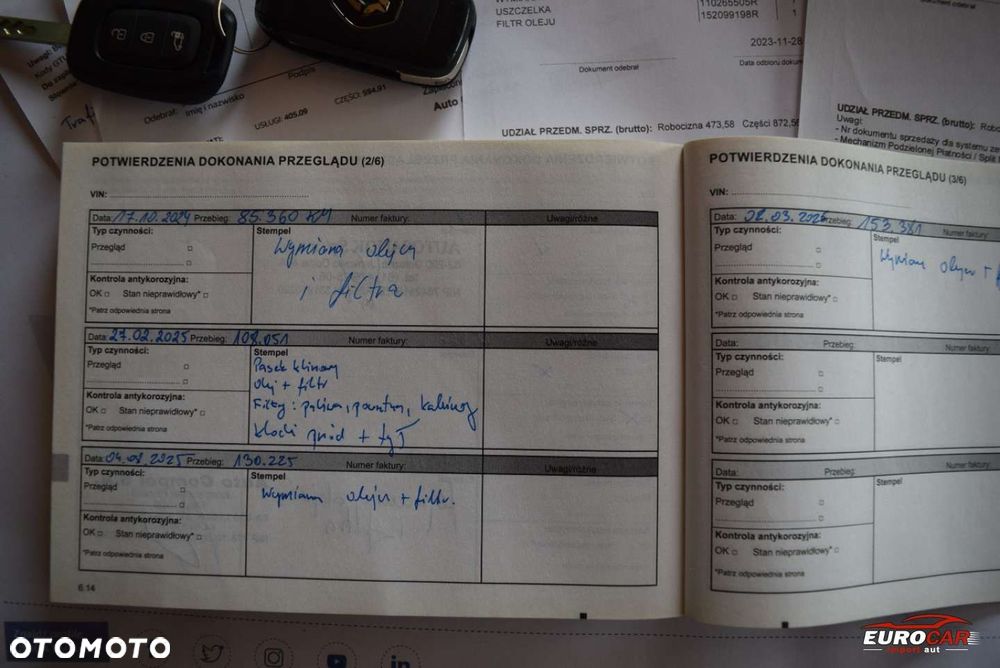 WYMIAN
USZCZELKA
FILTR OLEJU
110265505R
152099198R
1
2023-11-28
Dokument odebrał
Data odbioru dokum
Dokument odebrał
Uwagi: Be
Kody GTU
Do zapł
Słownie
Podpis
Odebrał: Imię i nazwisko
USŁUGI: 405,09
CZĘŚCI: 594,91
Auto
UDZIAŁ PRZEDM. SPRZ. (brutto): Robocizna 473,58 Części 872,56
UDZIAŁ PRZEDM. SPRZ. (brutto): Robo
Uwagi:
- Nr dokumentu sprzedaży dla systemu ze
- Mechanizm Podzielonej Płatności / Split
POTWIERDZENIA DOKONANIA PRZEGLĄDU (2/6)
VIN:
Data: 17.10.2024 Przebieg: 85.360 KM Numer faktury: Uwagi/różne
Typ czynności:
Przegląd
Stempel
Wymiana oleju
i filtra
Kontrola antykorozyjna:
OK Stan nieprawidłowy*
*Patrz odpowiednia strona
Data: 27.02.2025 Przebieg: 108.051 Numer faktury: Uwagi/różne
Typ czynności:
Przegląd
Stempel
Pasek klinowy
olej + filtr
Filtry: paliwa, powietrza, kabinowy
klocki przód + tył
Kontrola antykorozyjna:
OK Stan nieprawidłowy*
*Patrz odpowiednia strona
Data: 04.08.2025 Przebieg: 130.225 Numer faktury: Uwagi/różne
Typ czynności:
Przegląd
Stempel
Wymiana oleju + filtr.
Kontrola antykorozyjna:
OK Stan nieprawidłowy*
*Patrz odpowiednia strona
6.14
POTWIERDZENIA DOKONANIA PRZEGLĄDU (3/6)
VIN:
Data: 02.03.2026 Przebieg: 153.381 Numer faktury:
Typ czynności:
Przegląd
Stempel
Wymiana oleju +
Kontrola antykorozyjna:
OK Stan nieprawidłowy*
*Patrz odpowiednia strona
Data: Przebieg: Numer faktury:
Typ czynności:
Przegląd
Stempel
Kontrola antykorozyjna:
OK Stan nieprawidłowy*
*Patrz odpowiednia strona
Data: Przebieg: Numer faktury:
Typ czynności:
Przegląd
Stempel
Kontrola antykorozyjna:
OK Stan nieprawidłowy*
*Patrz odpowiednia strona
OTOMOTO
in
EUROCAR
import aut